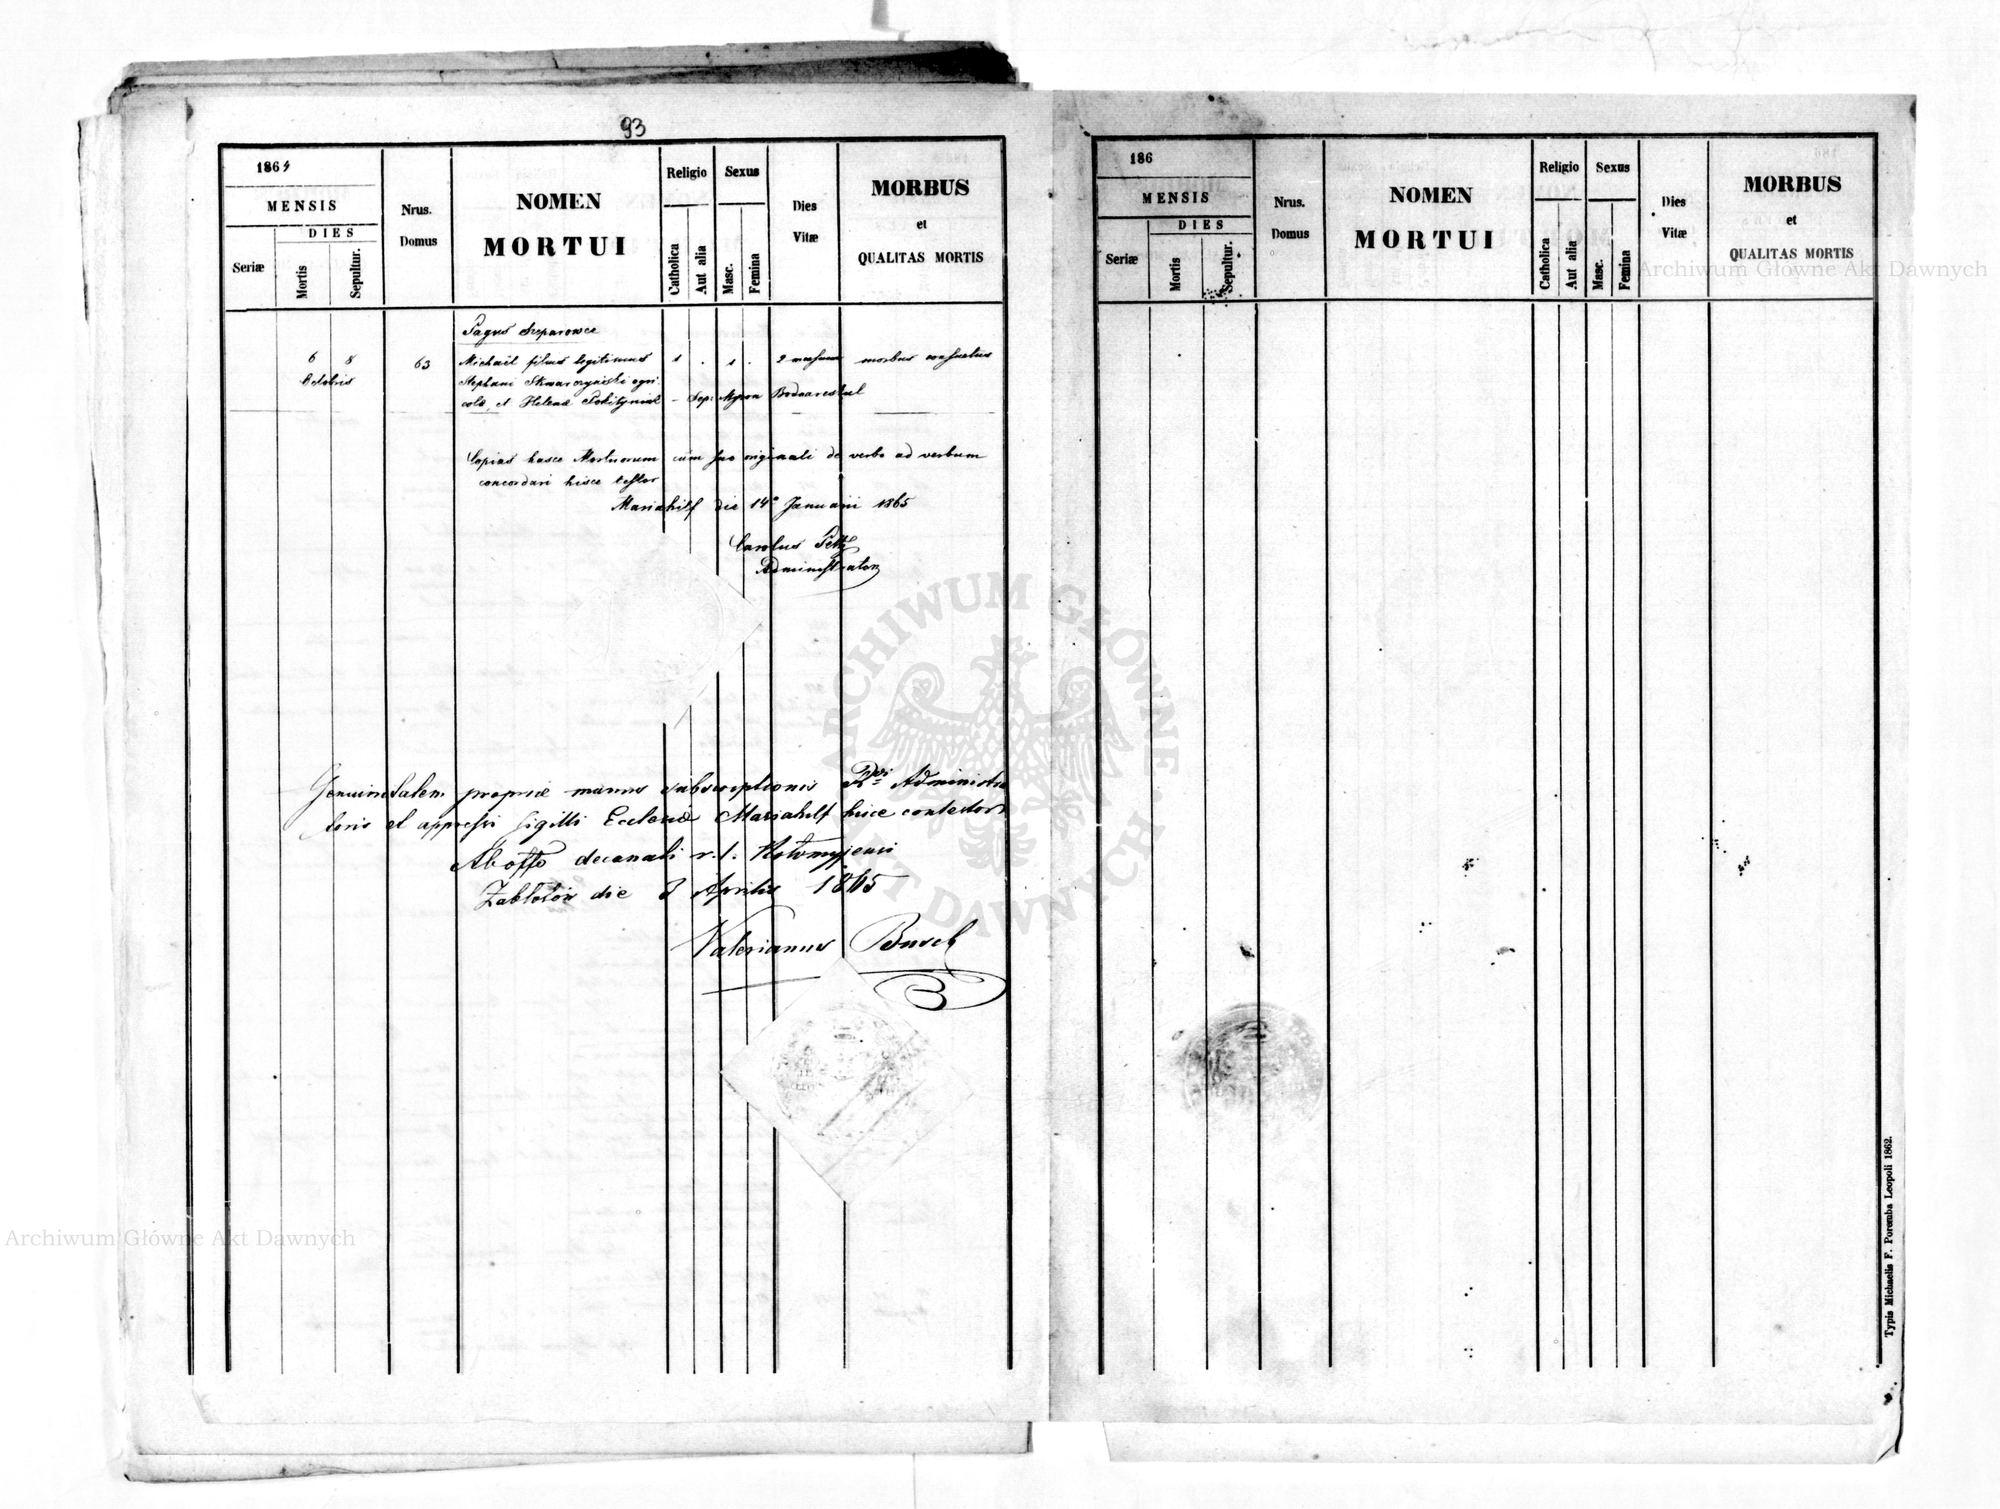 93
1864
MENSIS
DIES
Seriæ
Mortis
Sepultur.
Nrus.
Domus
NOMEN
MORTUI
Religio
Catholica
Aut alia
Sexus
Masc.
Femina
Dies
Vitæ
MORBUS
et
QUALITAS MORTIS
Pagus Szeparowce
6 8 63 Michaël filius legitimus 1 . 1 . 2 mensium morbus consuetus
Octobris Stephani Skwarczyński agri
colæ, et Helenæ - Sep: Myron
Copias hasce Mortuorum cum suo originali de verbo ad verbum
concordari hisce testor
Mariahilf die 14ª Januarii 1865
Carolus
Administrator
Genuinitatem propriæ manus subscriptionis Rdi Administra
toris et appressi sigilli Ecclesiæ Mariahilf hisce contestor
Ab offo decanali r. l. Kołomyjensi
Zabłotów die 8 Aprilis 1865
Valerianus Busch
186
MENSIS
DIES
Seriæ
Mortis
Sepultur.
Nrus.
Domus
NOMEN
MORTUI
Religio
Catholica
Aut alia
Sexus
Masc.
Femina
Dies
Vitæ
MORBUS
et
QUALITAS MORTIS
Typis Michaelis F. Poremba Leopoli 1862.
Archiwum Główne Akt Dawnych
Archiwum Główne Akt Dawnych
ARCHIWUM GŁÓWNE AKT DAWNYCH